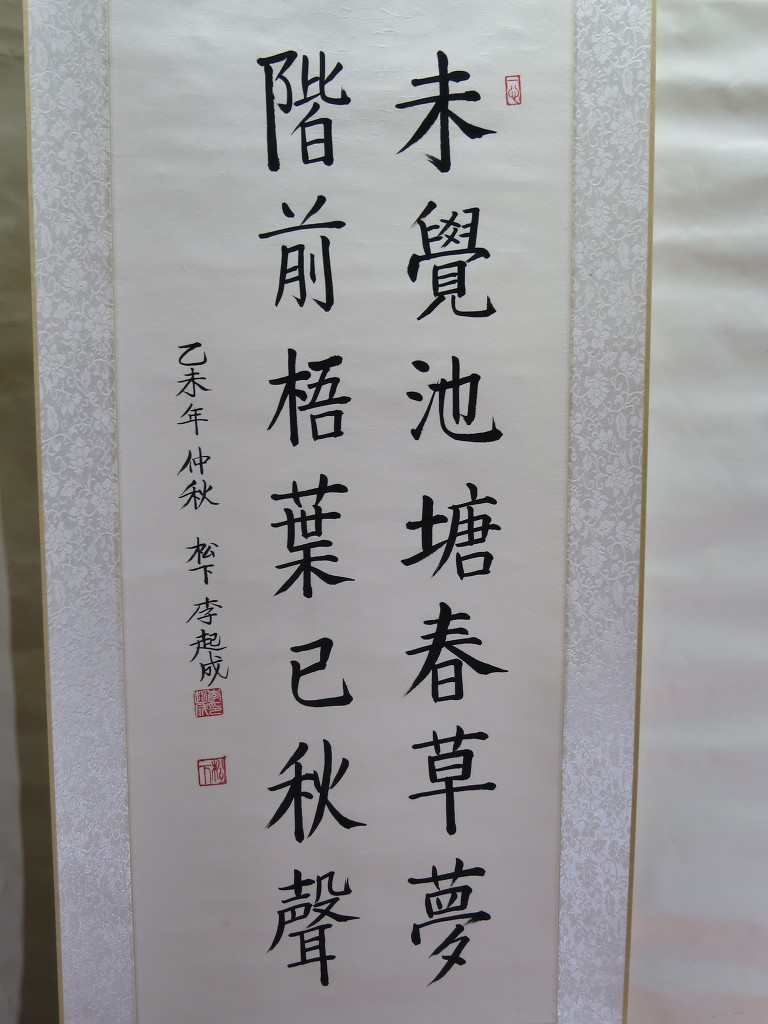 未覺池塘春草夢
階前梧葉已秋聲
乙未年仲秋 松下李起成
松下